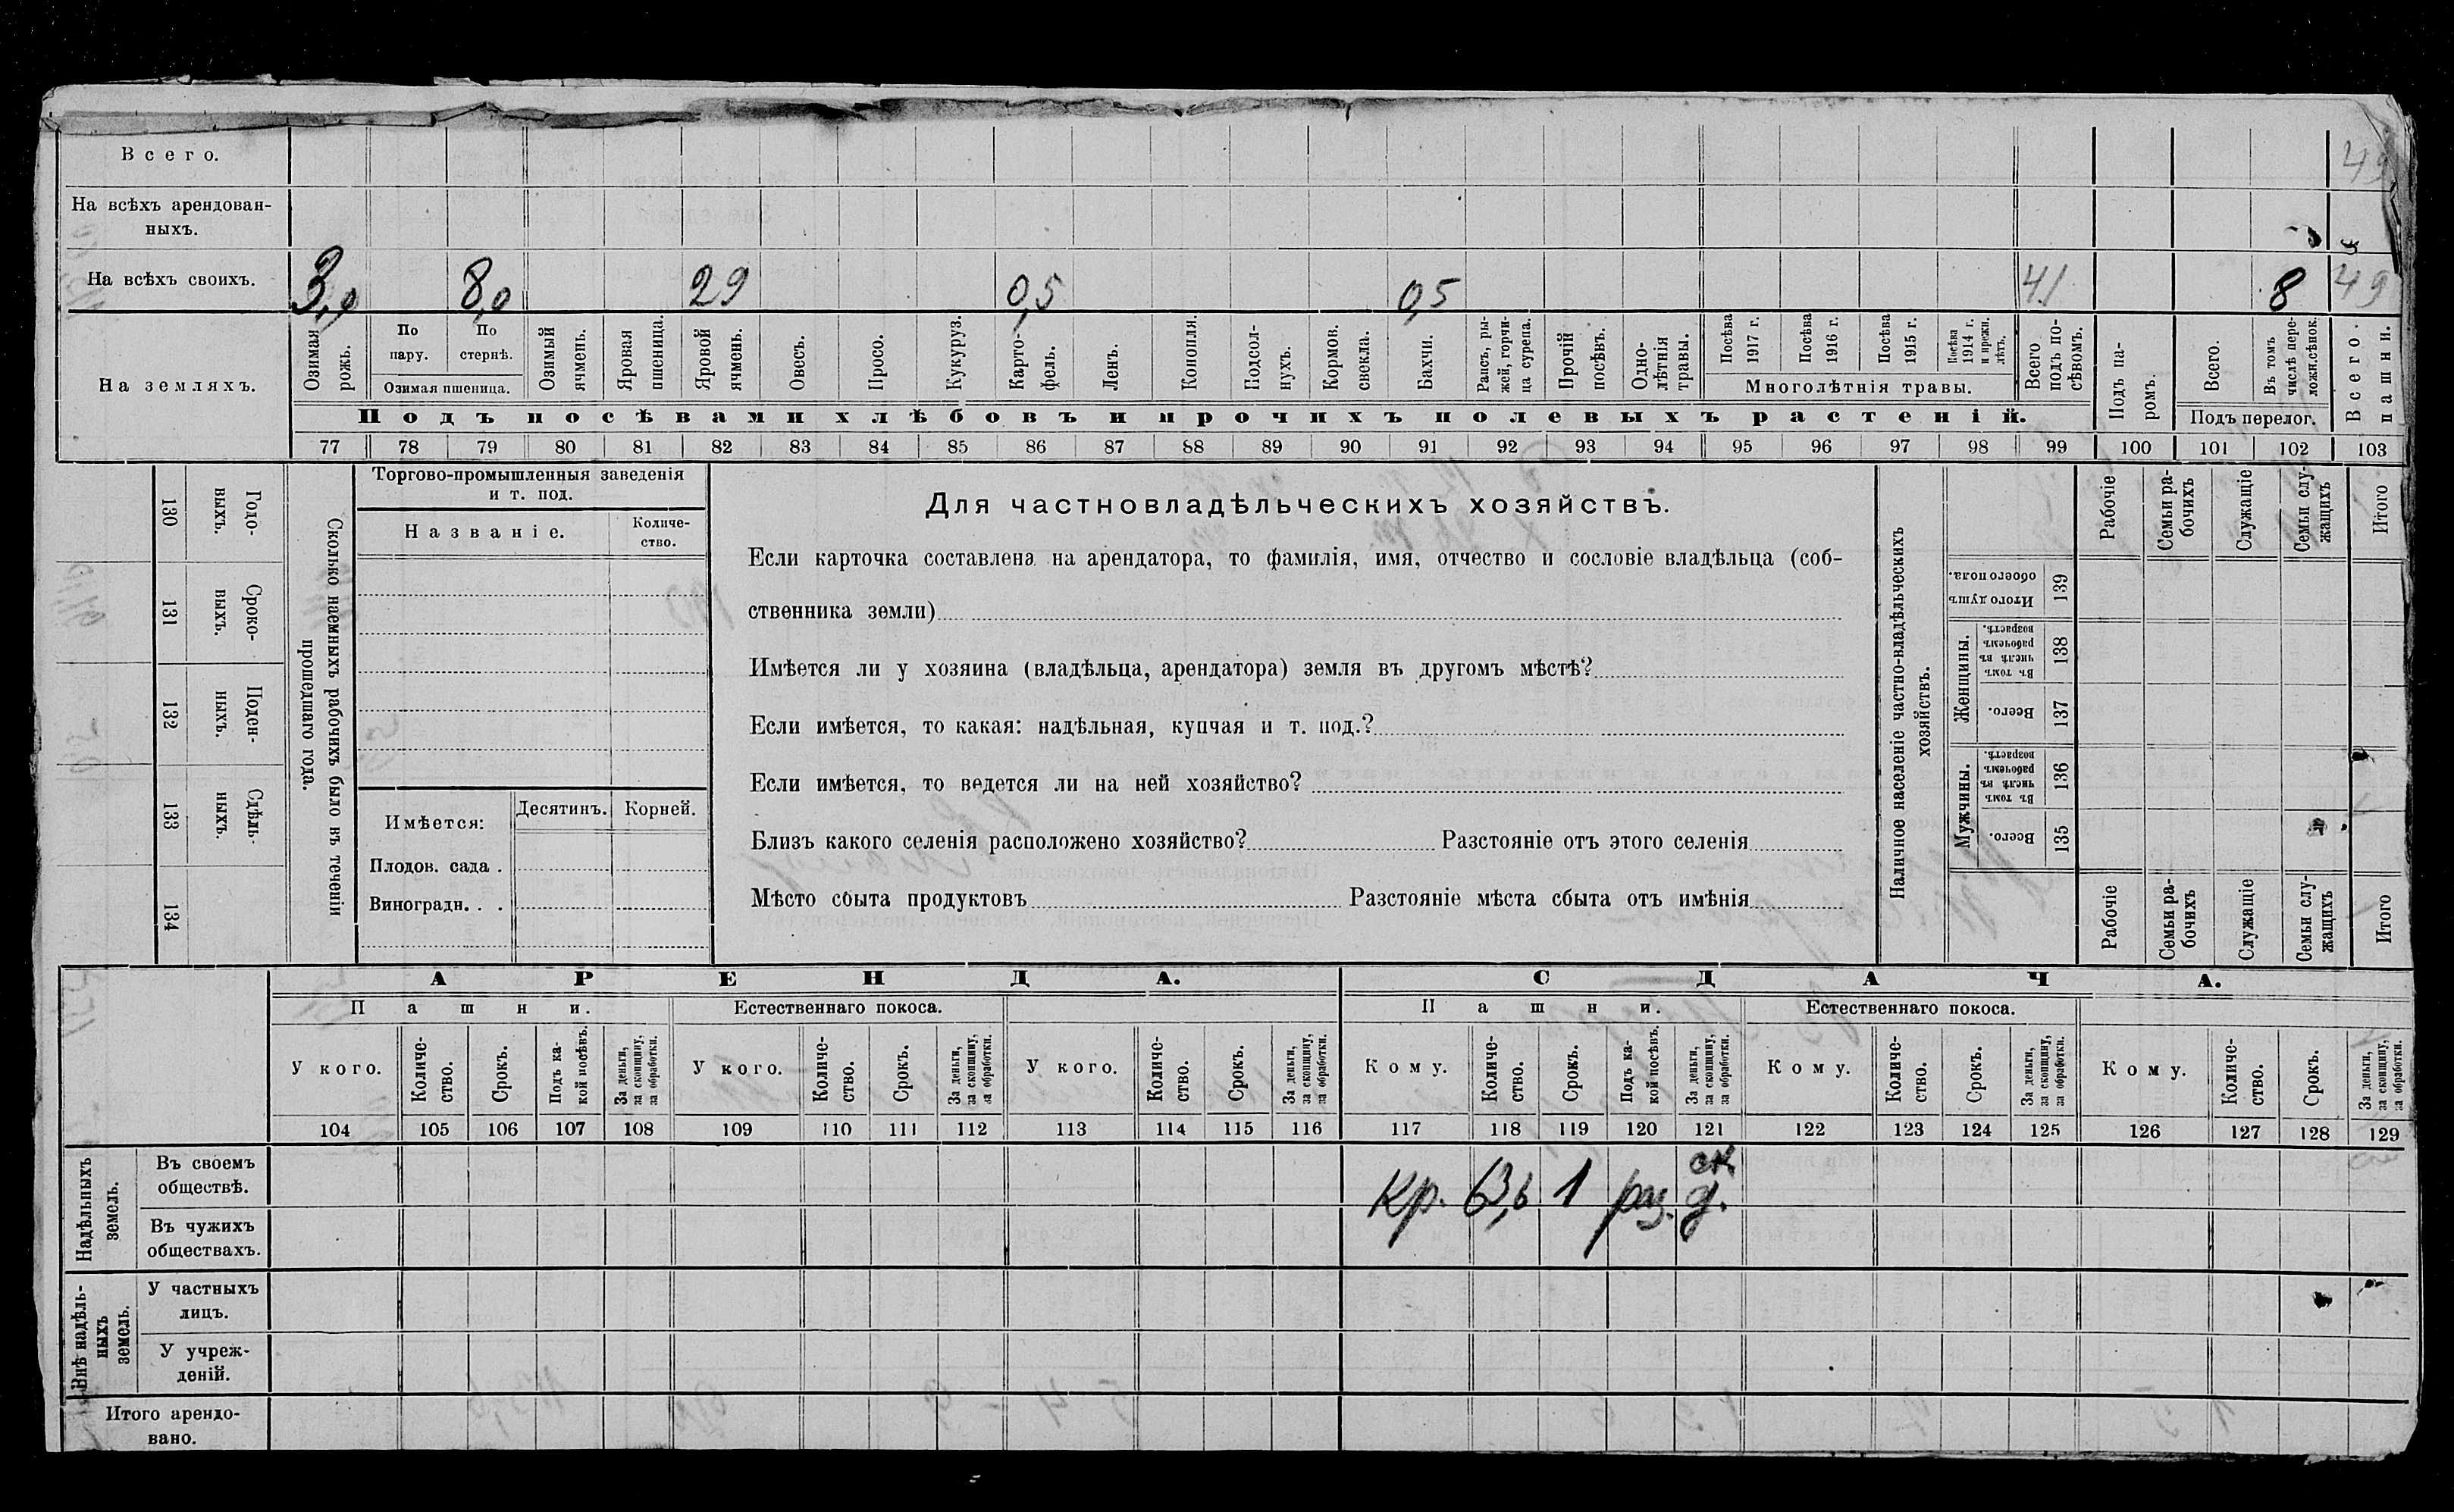 Всего. 49
На всѣхъ арендован-
ныхъ.
На всѣхъ своихъ. 3,0 8,0 29 0,5 0,5 41. 8 49
На земляхъ.
Озимая рожь.
По пару.
По стернѣ.
Озимая пшеница.
Озимый ячмень.
Яровая пшеница.
Яровой ячмень.
Овесъ.
Просо.
Кукуруз.
Карто-
фель.
Ленъ.
Конопля.
Подсол-
нухъ.
Кормов. свекла.
Бахчи.
Рапсъ, ры-
жей, горчи-
ца сурепа.
Прочій посѣвъ.
Одно-
лѣтнія травы.
Посѣва 1917 г.
Посѣва 1916 г.
Посѣва 1915 г.
Посѣва 1914 г. и прежн. лѣтъ.
Многолѣтнія травы.
Всего подъ по-
сѣвомъ.
Подъ па-
ромъ.
Всего.
Въ томъ числѣ пере-
ложн.сѣнок.
Подъ перелог.
Всего пашни.
Подъ посѣвами хлѣбовъ и прочихъ полевыхъ растеній.
77 78 79 80 81 82 83 84 85 86 87 88 89 90 91 92 93 94 95 96 97 98 99 100 101 102 103
130 Годо-
выхъ.
131 Сроко-
выхъ.
132 Поден-
ныхъ.
133 Сдѣль-
ныхъ.
134
Сколько наемныхъ рабочихъ было въ теченіи
прошедшаго года.
Торгово-промышленныя заведенія
и т. под.
Названіе.
Количе-
ство.
Имѣется:
Десятинъ. Корней.
Плодов. сада .
Виноградн. . .
Для частновладѣльческихъ хозяйствъ.
Если карточка составлена на арендатора, то фамилія, имя, отчество и сословіе владѣльца (соб-
ственника земли)
Имѣется ли у хозяина (владѣльца, арендатора) земля въ другомъ мѣстѣ?
Если имѣется, то какая: надѣльная, купчая и т. под.?
Если имѣется, то ведется ли на ней хозяйство?
Близъ какого селенія расположено хозяйство? Разстояніе отъ этого селенія
Мѣсто сбыта продуктовъ Разстояніе мѣста сбыта отъ имѣнія
Наличное населеніе частно-владѣльческихъ
хозяйствъ.
Рабочіе
Семьи ра-
бочихъ
Служащіе
Семьи слу-
жащихъ
Итого
Итого душъ обоего пола. 139
Женщины.
Въ томъ числѣ въ рабочемъ возрастѣ. 138
Всего. 137
Мужчины.
Въ томъ числѣ въ рабочемъ возрастѣ. 136
Всего. 135
Рабочіе
Семьи ра-
бочихъ
Служащіе
Семьи слу-
жащихъ
Итого
АРЕНДА. СДАЧА.
Пашни. Естественнаго покоса. Пашни. Естественнаго покоса.
У кого.
Количе-
ство.
Срокъ.
Подъ ка-
кой посѣвъ.
За деньги, за скопщину, за обработки.
У кого.
Количе-
ство.
Срокъ.
За деньги, за скопщину, за обработки.
У кого.
Количе-
ство.
Срокъ.
За деньги, за скопщину, за обработки.
Кому.
Количе-
ство.
Срокъ.
Подъ ка-
кой посѣвъ.
За деньги, за скопщину, за обработки.
Кому.
Количе-
ство.
Срокъ.
За деньги, за скопщину, за обработки.
Кому.
Количе-
ство.
Срокъ.
За деньги, за скопщину, за обработки.
104 105 106 107 108 109 110 111 112 113 114 115 116 117 118 119 120 121 122 123 124 125 126 127 128 129
Надѣльныхъ
земель.
Въ своемъ
обществѣ.
ск.
Кр. 1 раз. д.
Въ чужихъ
обществахъ.
Внѣ надѣль-
ныхъ
земель.
У частныхъ
лицъ.
У учреж-
деній.
Итого арендо-
вано.